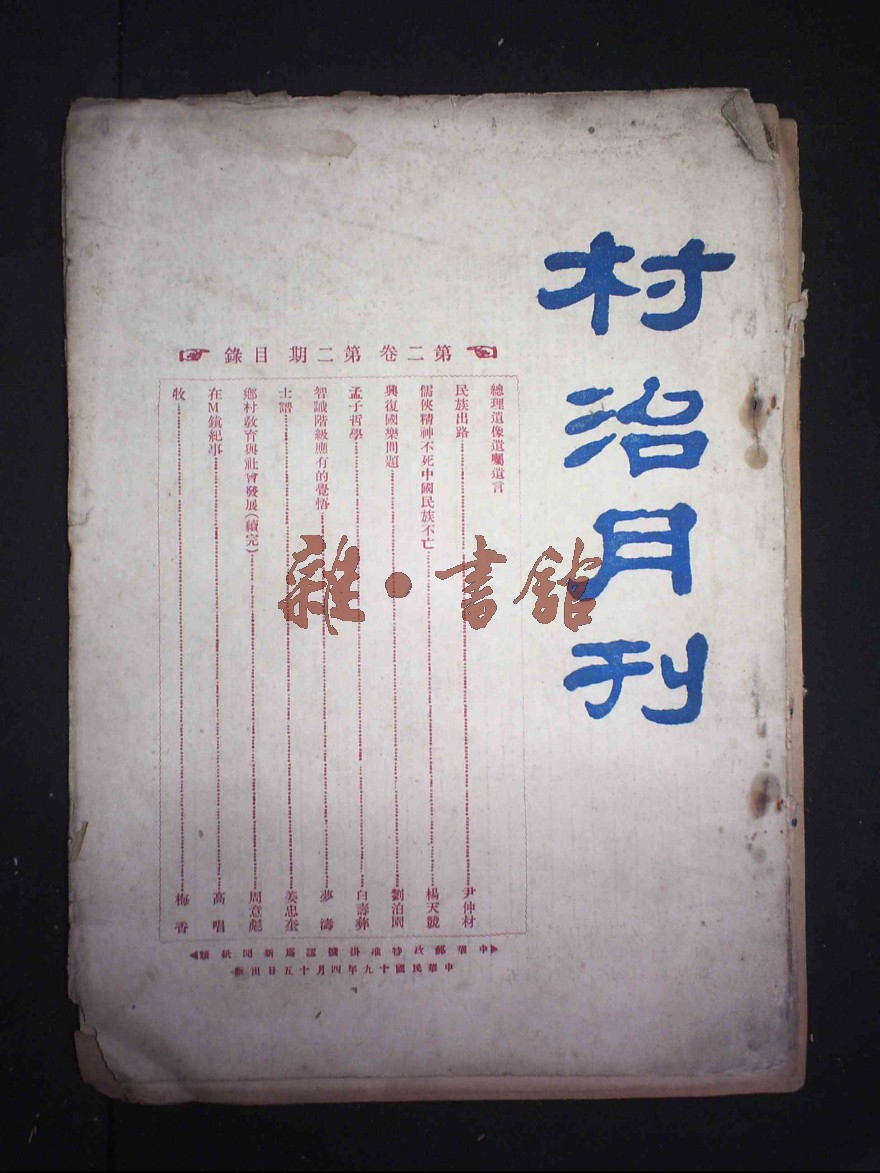 村治月刊
第二卷 第二期 目錄
總理遺像遺囑遺言
民族出路 尹仲材
儒俠精神不死中國民族不亡 楊天競
興復國樂問題 劉泊園
孟子哲學 白壽彝
智識階級應有的覺悟 夢濤
士譜 姜忠奎
鄉村教育與社會發展(續完) 周意彪
在M鎮紀事 高唱
牧 梅香
中華郵政特准掛號認爲新聞紙類
中華民國十九年四月十五日出版
雜·書舘